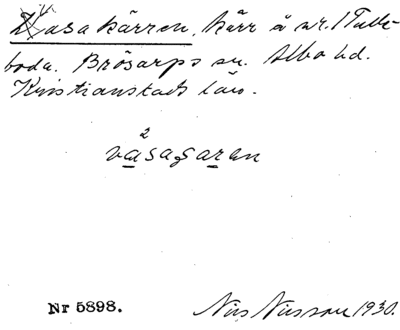 Vasakärren, kärr å nr. 1 Tulle-
boda. Brösarps sn. Albo hd.
Kristianstads län.
2
vasagaren
Nr 5898. Nils Nilsson 1930.